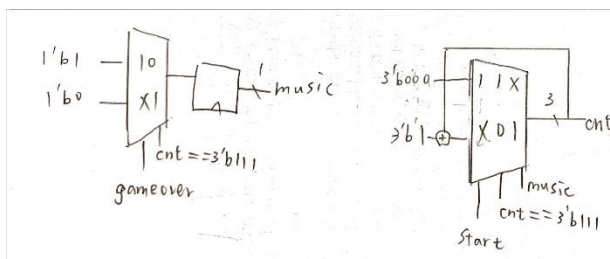 1'b1
10
1'b0
X1
1
music
cnt==3'b111
gameover
3'b000
11X
3'b'1
+
X01
3
cnt
music
cnt==3'b111
start